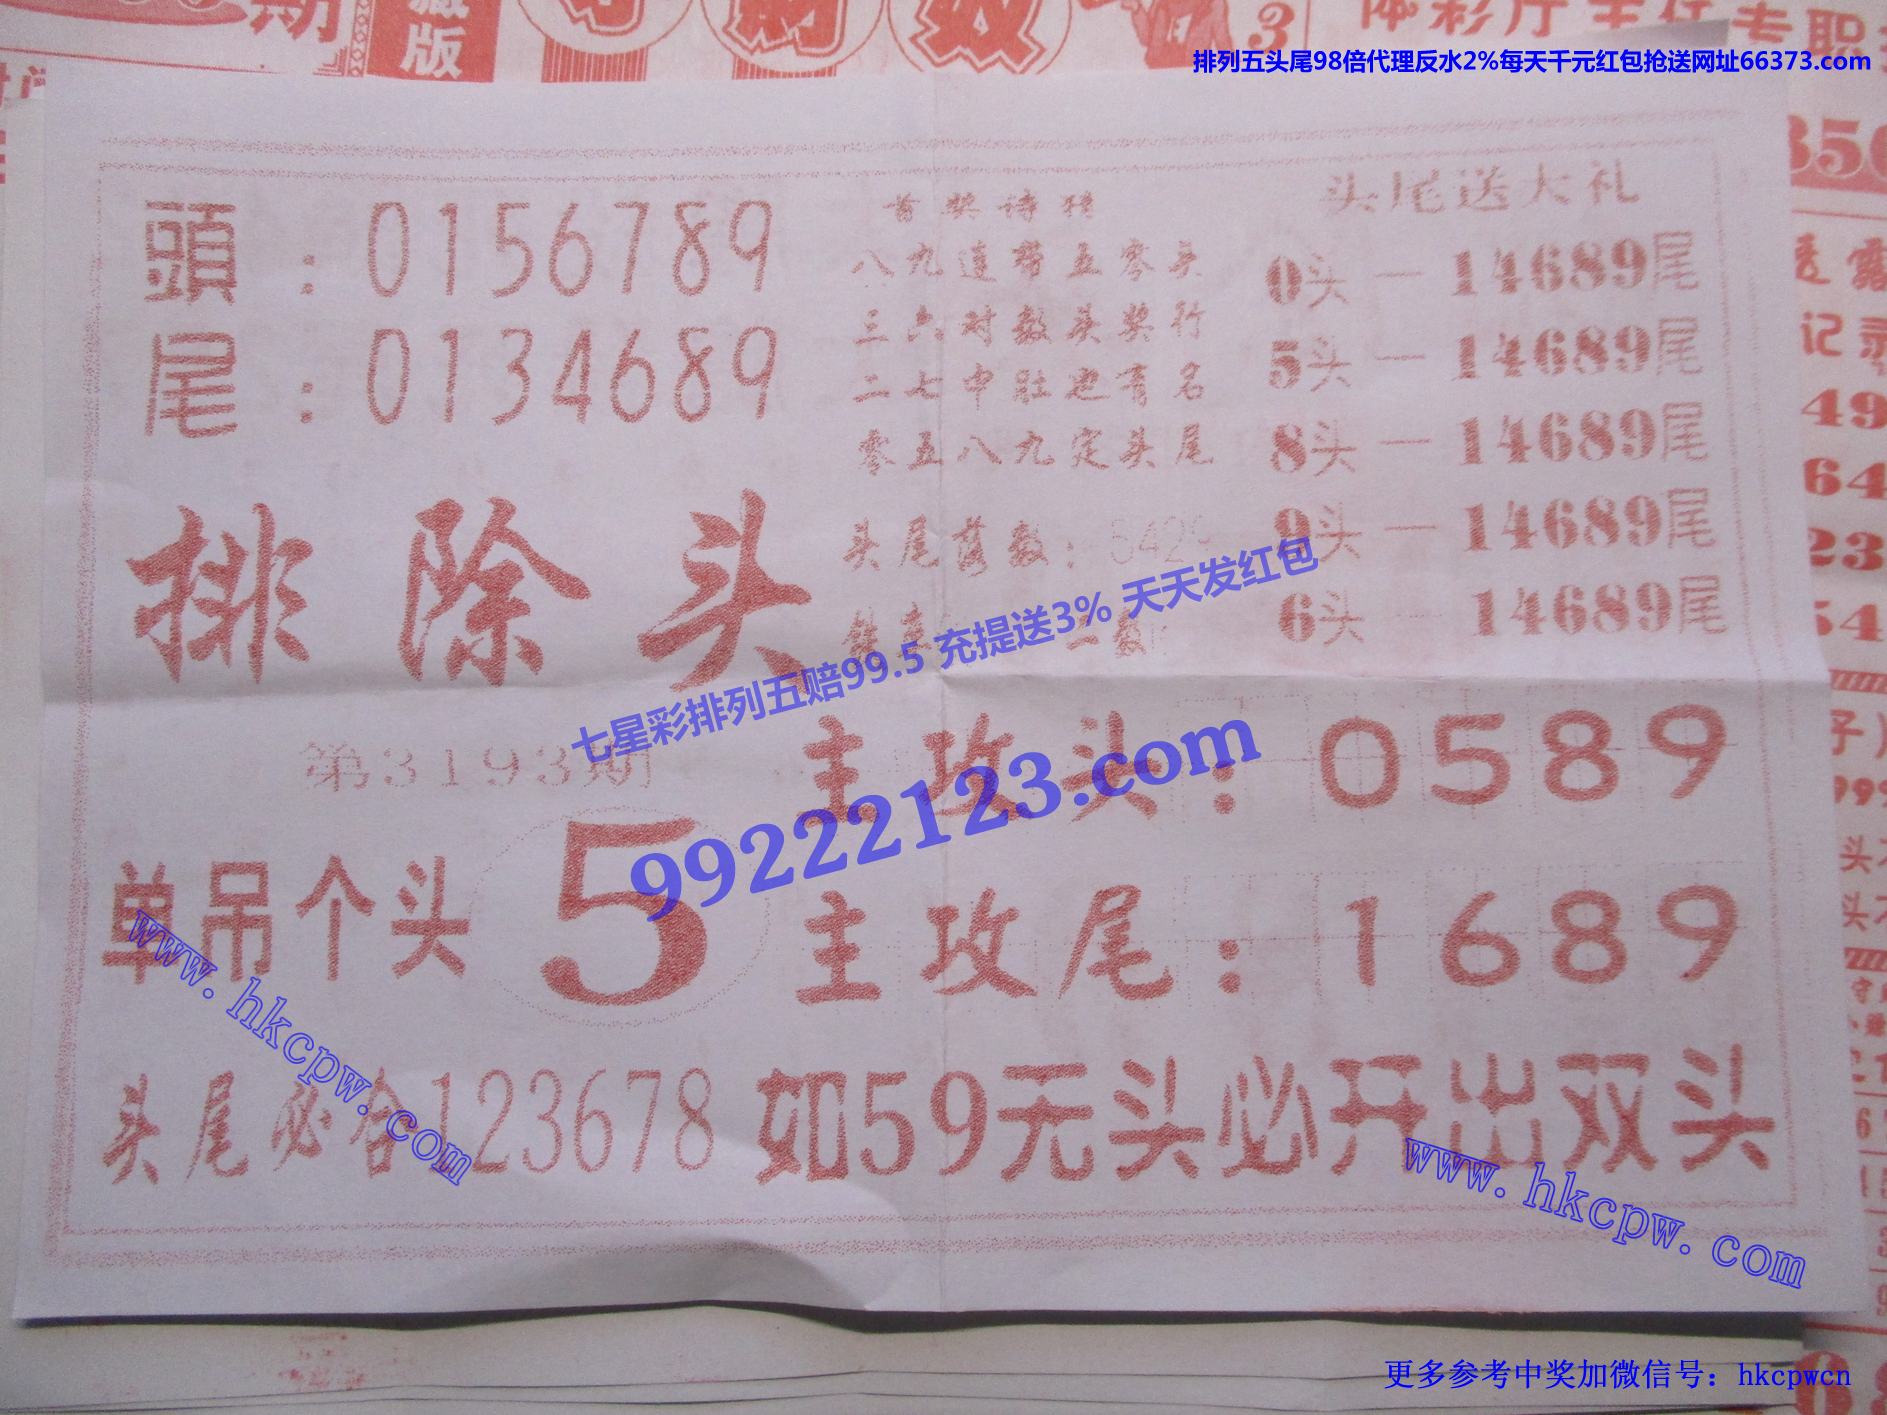 藏版
3
体彩厅主任专职
排列五头尾98倍代理反水2%每天千元红包抢送网址66373.com
頭：0156789
尾：0134689
首奖诗猜
八九连带五零头
三六对数头奖行
二七中肚也有名
零五八九定头尾
头尾送大礼
0头—14689尾
5头—14689尾
8头—14689尾
9头—14689尾
6头—14689尾
排除头
第3193期
七星彩排列五赔99.5 充提送3% 天天发红包
99222123.com
主攻头：0589
单吊个头 5
主攻尾：1689
www.hkcpw.com
头尾必合123678 如59无头必开出双头
www.hkcpw.com
记录
49
64
23
54
更多参考中奖加微信号：hkcpwcn